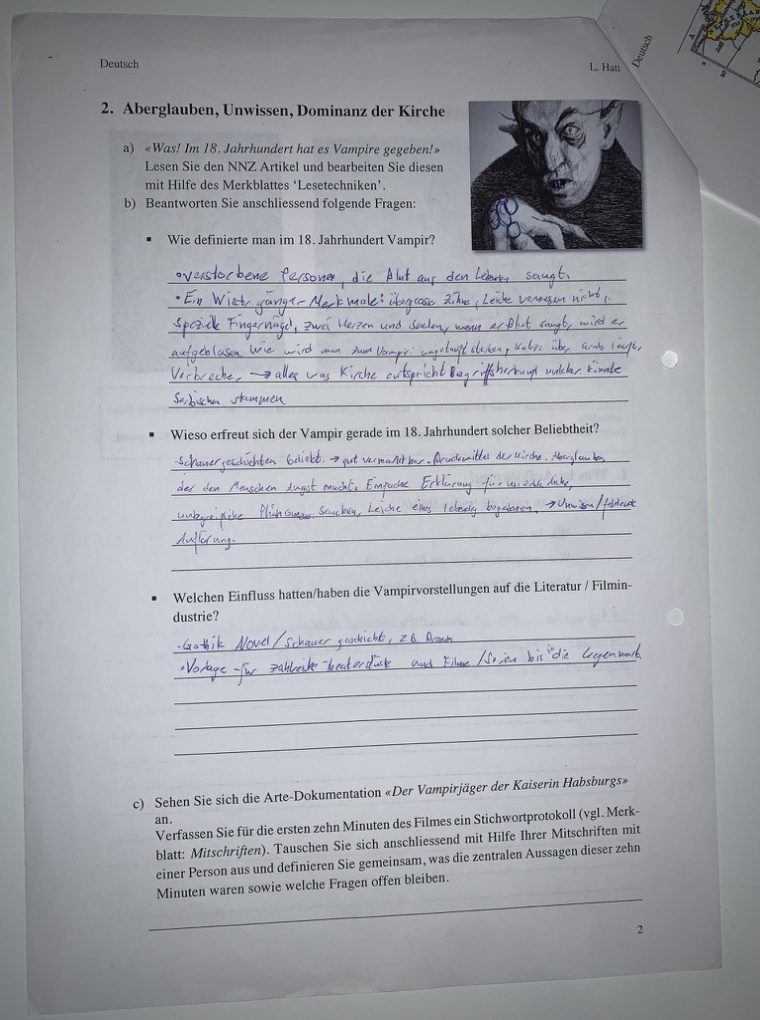 Deutsch
L. Hatt
Deutsch
2. Aberglauben, Unwissen, Dominanz der Kirche
a) «Was! Im 18. Jahrhundert hat es Vampire gegeben!»
Lesen Sie den NNZ Artikel und bearbeiten Sie diesen
mit Hilfe des Merkblattes 'Lesetechniken'.
b) Beantworten Sie anschliessend folgende Fragen:
▪ Wie definierte man im 18. Jahrhundert Vampir?
• verstorbene Personen, die Blut aus den Lebenden saugt.
• Ein Wiedergänger Merkmale: übergrosse Zähne, Leiche verwesen nicht,
Spezielle Fingernägel, zwei Herzen und Seelen, wenn er Blut saugt, wird er
aufgeblasen Wie wird man zum Vampir ungetauft sterben, Katze über Grab läuft,
Verbrecher, → alles was Kirche entspricht Begriffsherkunft unklar könnte
Serbischen stammen
▪ Wieso erfreut sich der Vampir gerade im 18. Jahrhundert solcher Beliebtheit?
Schauergeschichten beliebt. → gut vermarktbar. Druckmittel der Kirche. Aberglauben
der den Menschen Angst macht. Einfache Erklärung für
Phänomen Seuchen, Leiche eines lebendig begraben, → Unwissen / fehlende
Aufklärung.
▪ Welchen Einfluss hatten/haben die Vampirvorstellungen auf die Literatur / Filmin-
dustrie?
• Gothik Novel / Schauergeschichte, z.B.
• Vorlage für zahlreiche Theaterstück und Filme / Serie bis in die Gegenwart.
c) Sehen Sie sich die Arte-Dokumentation «Der Vampirjäger der Kaiserin Habsburgs»
an.
Verfassen Sie für die ersten zehn Minuten des Filmes ein Stichwortprotokoll (vgl. Merk-
blatt: Mitschriften). Tauschen Sie sich anschliessend mit Hilfe Ihrer Mitschriften mit
einer Person aus und definieren Sie gemeinsam, was die zentralen Aussagen dieser zehn
Minuten waren sowie welche Fragen offen bleiben.
2